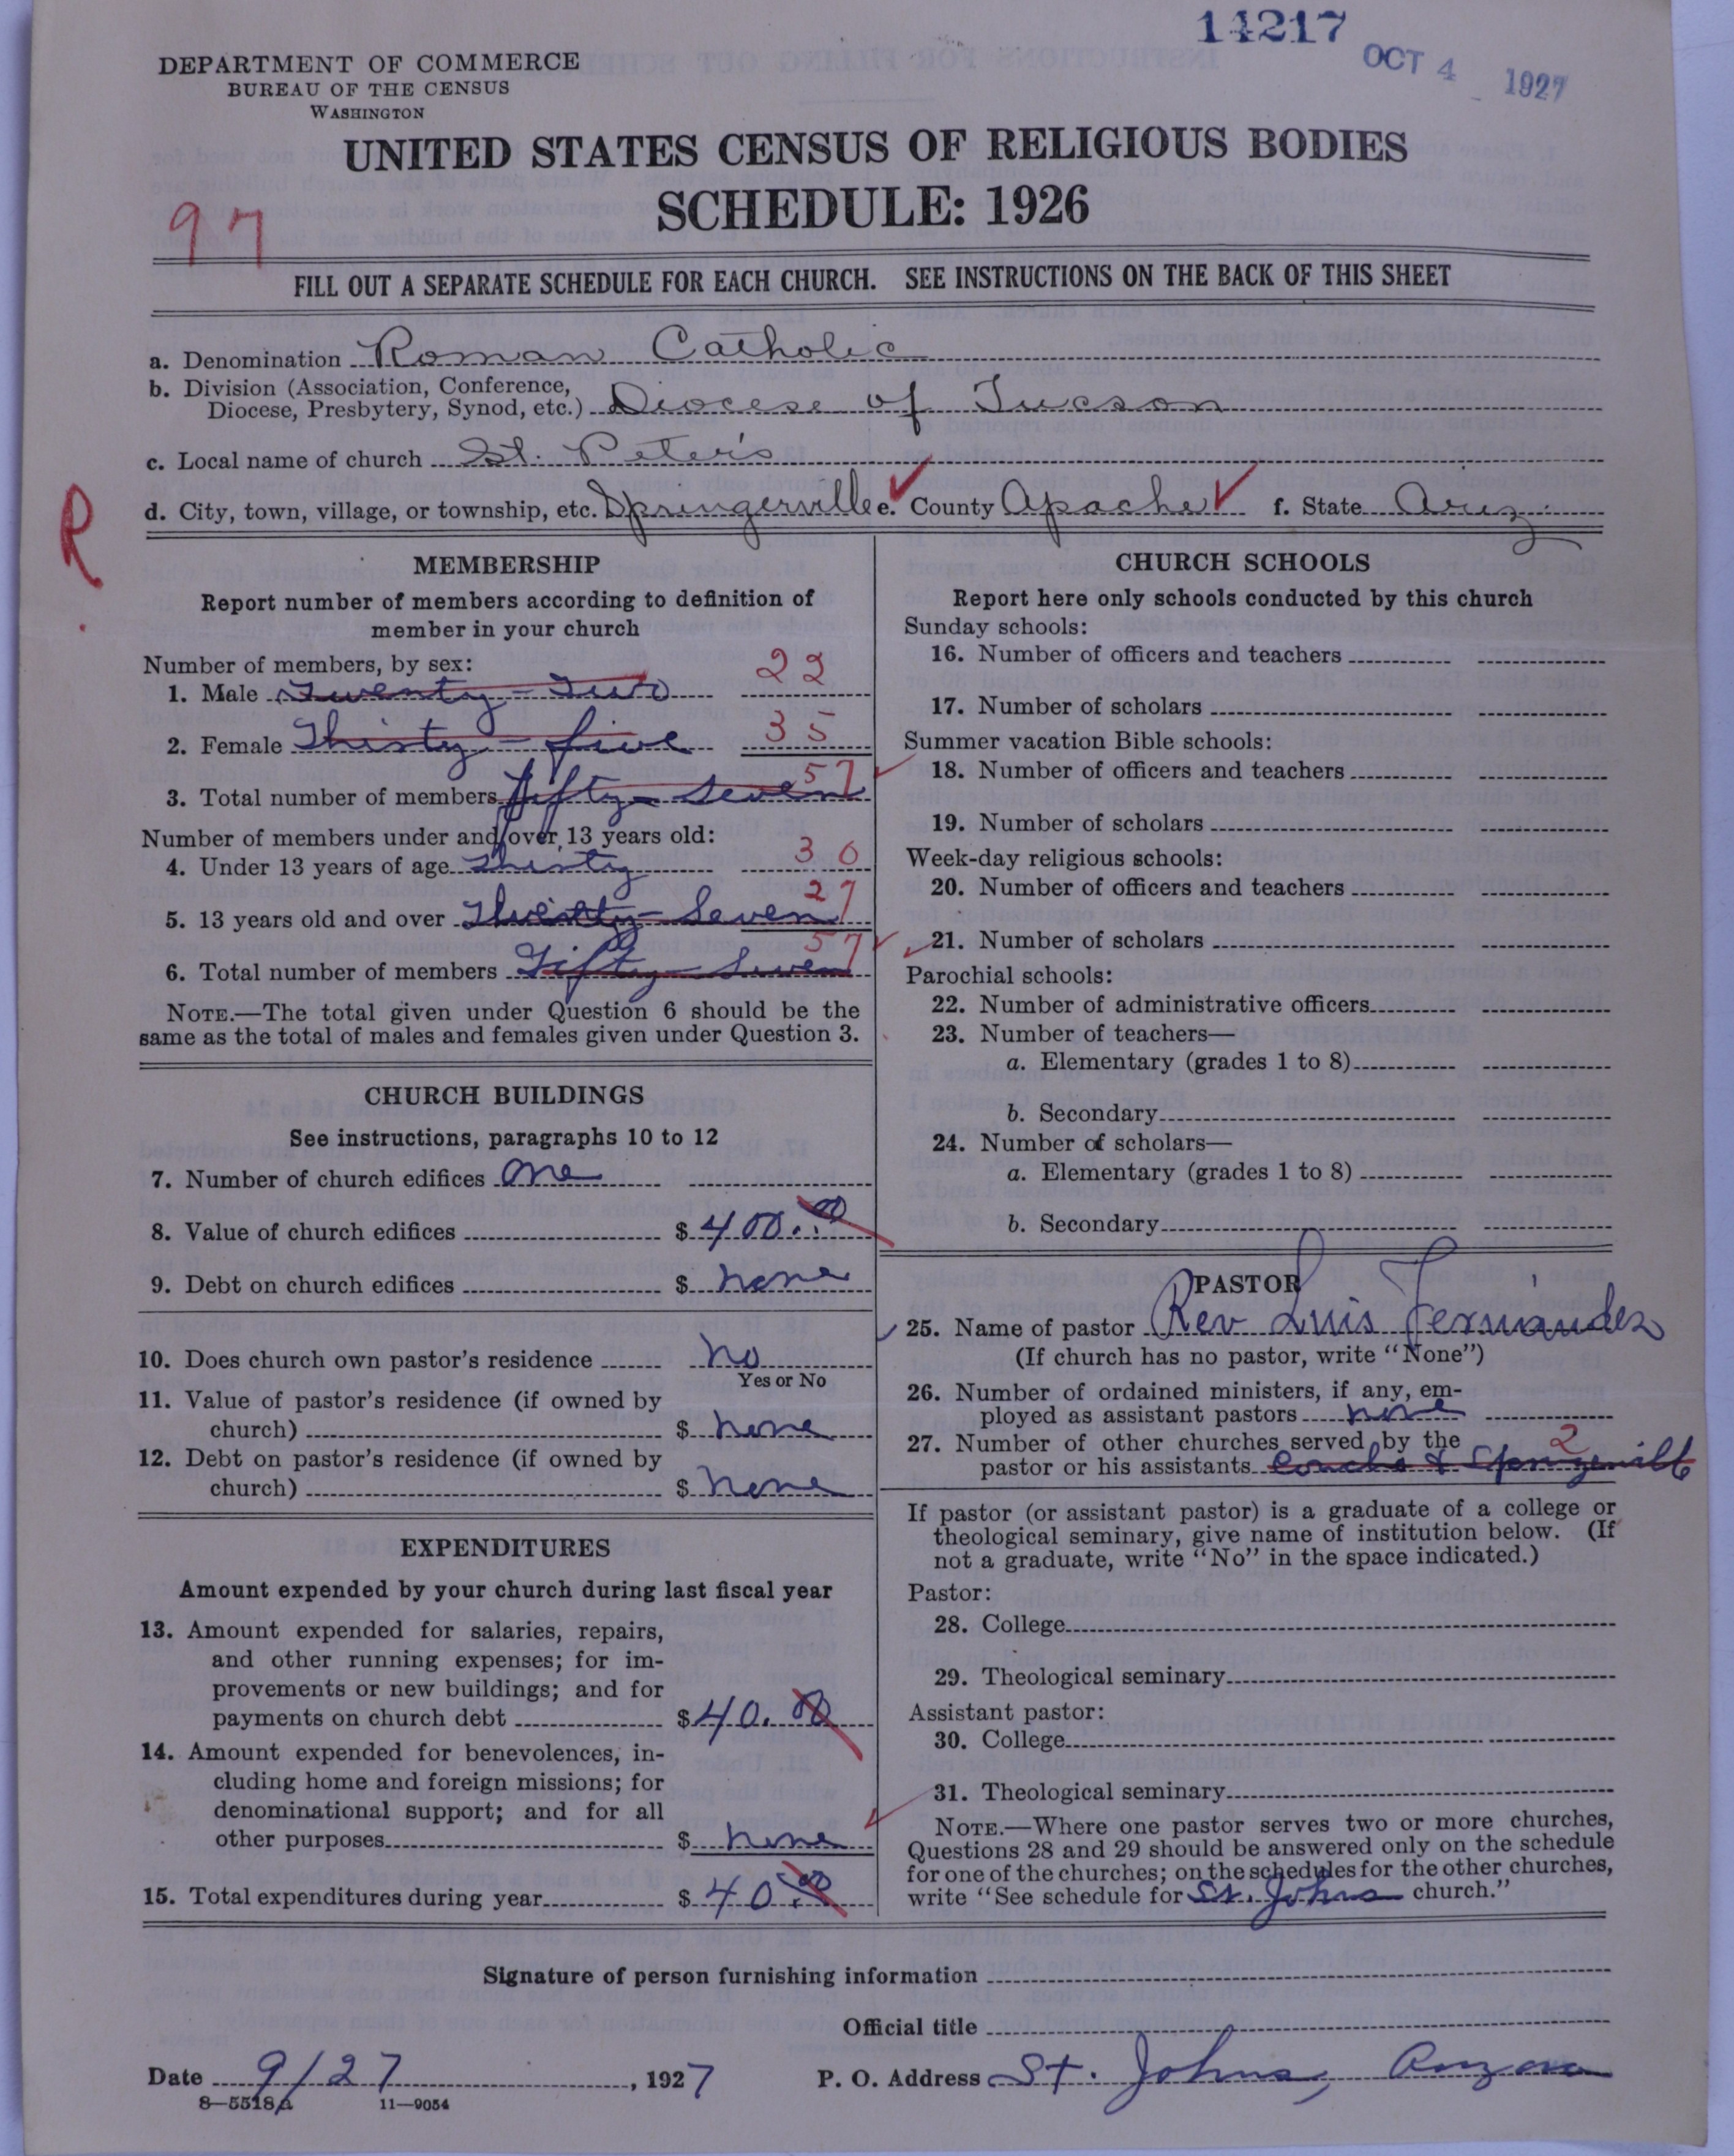 14217
OCT 4 1927
DEPARTMENT OF COMMERCE
BUREAU OF THE CENSUS
WASHINGTON
UNITED STATES CENSUS OF RELIGIOUS BODIES
SCHEDULE: 1926
97
FILL OUT A SEPARATE SCHEDULE FOR EACH CHURCH. SEE INSTRUCTIONS ON THE BACK OF THIS SHEET
a. Denomination Roman Catholic
b. Division (Association, Conference,
Diocese, Presbytery, Synod, etc.) Diocese of Tucson
c. Local name of church St. Peter's
d. City, town, village, or township, etc. Springerville e. County Apache f. State Ariz.
R.
MEMBERSHIP
Report number of members according to definition of
member in your church
Number of members, by sex:
1. Male Twenty-Two 22
2. Female Thirty-five 35
3. Total number of members fifty-Seven 57
Number of members under and over 13 years old:
4. Under 13 years of age Thirty 30
5. 13 years old and over Twenty-Seven 27
6. Total number of members Fifty-Seven 57
NOTE.—The total given under Question 6 should be the
same as the total of males and females given under Question 3.
CHURCH BUILDINGS
See instructions, paragraphs 10 to 12
7. Number of church edifices One
8. Value of church edifices $ 400.00
9. Debt on church edifices $ none
10. Does church own pastor's residence No
Yes or No
11. Value of pastor's residence (if owned by
church) $ none
12. Debt on pastor's residence (if owned by
church) $ none
EXPENDITURES
Amount expended by your church during last fiscal year
13. Amount expended for salaries, repairs,
and other running expenses; for im-
provements or new buildings; and for
payments on church debt $ 40.00
14. Amount expended for benevolences, in-
cluding home and foreign missions; for
denominational support; and for all
other purposes $ none
15. Total expenditures during year $ 40.00
CHURCH SCHOOLS
Report here only schools conducted by this church
Sunday schools:
16. Number of officers and teachers
17. Number of scholars
Summer vacation Bible schools:
18. Number of officers and teachers
19. Number of scholars
Week-day religious schools:
20. Number of officers and teachers
21. Number of scholars
Parochial schools:
22. Number of administrative officers
23. Number of teachers—
a. Elementary (grades 1 to 8)
b. Secondary
24. Number of scholars—
a. Elementary (grades 1 to 8)
b. Secondary
PASTOR
25. Name of pastor Rev Luis Fernández
(If church has no pastor, write "None")
26. Number of ordained ministers, if any, em-
ployed as assistant pastors none
27. Number of other churches served by the 2
pastor or his assistants Concho &
If pastor (or assistant pastor) is a graduate of a college or
theological seminary, give name of institution below. (If
not a graduate, write "No" in the space indicated.)
Pastor:
28. College
29. Theological seminary
Assistant pastor:
30. College
31. Theological seminary
NOTE.—Where one pastor serves two or more churches,
Questions 28 and 29 should be answered only on the schedule
for one of the churches; on the schedules for the other churches,
write "See schedule for St. Johns church."
Signature of person furnishing information
Official title
Date 9/27, 1927 P. O. Address St. Johns, Arizona
8—5518a 11—9054